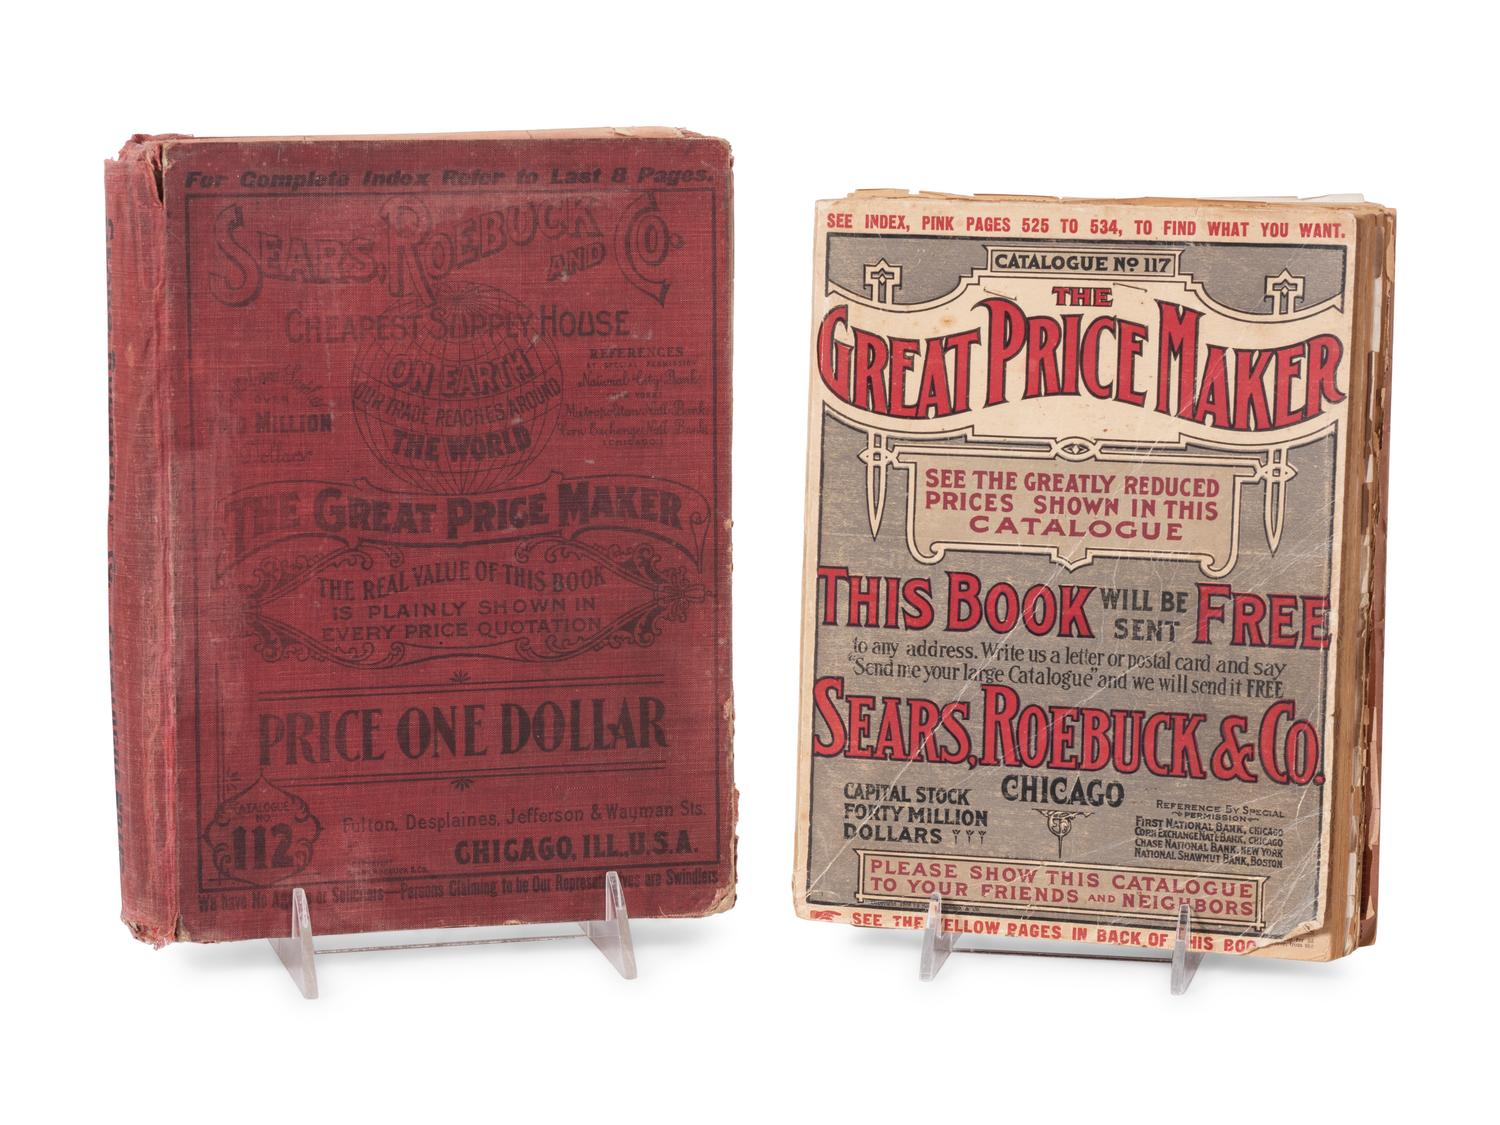 For Complete Index Refer to Last 8 Pages.
SEARS, ROEBUCK AND CO.
CHEAPEST SUPPLY HOUSE
ON EARTH
OUR TRADE REACHES AROUND
THE WORLD
OVER
MILLION
Dollars
REFERENCES
BY SPECIAL PERMISSION
National City Bank
NEW YORK
Metropolitan Natl Bank
Corn Exchange Natl Bank
CHICAGO
THE GREAT PRICE MAKER
THE REAL VALUE OF THIS BOOK
IS PLAINLY SHOWN IN
EVERY PRICE QUOTATION
PRICE ONE DOLLAR
CATALOGUE
NO.
112
Fulton, Desplaines, Jefferson & Wayman Sts.
CHICAGO, ILL., U.S.A.
We have No or Solicitors—Persons Claiming to be Our are Swindlers
SEE INDEX, PINK PAGES 525 TO 534, TO FIND WHAT YOU WANT.
CATALOGUE No 117
THE
GREAT PRICE MAKER
SEE THE GREATLY REDUCED
PRICES SHOWN IN THIS
CATALOGUE
THIS BOOK WILL BE SENT FREE
to any address. Write us a letter or postal card and say
"Send me your large Catalogue" and we will send it FREE
SEARS, ROEBUCK & CO.
CHICAGO
CAPITAL STOCK
FORTY MILLION
DOLLARS
REFERENCE BY SPECIAL
PERMISSION
FIRST NATIONAL BANK, CHICAGO
CORN EXCHANGE NAT'L BANK, CHICAGO
CHASE NATIONAL BANK, NEW YORK
NATIONAL SHAWMUT BANK, BOSTON
PLEASE SHOW THIS CATALOGUE
TO YOUR FRIENDS AND NEIGHBORS
SEE THE YELLOW PAGES IN BACK OF THIS BOO